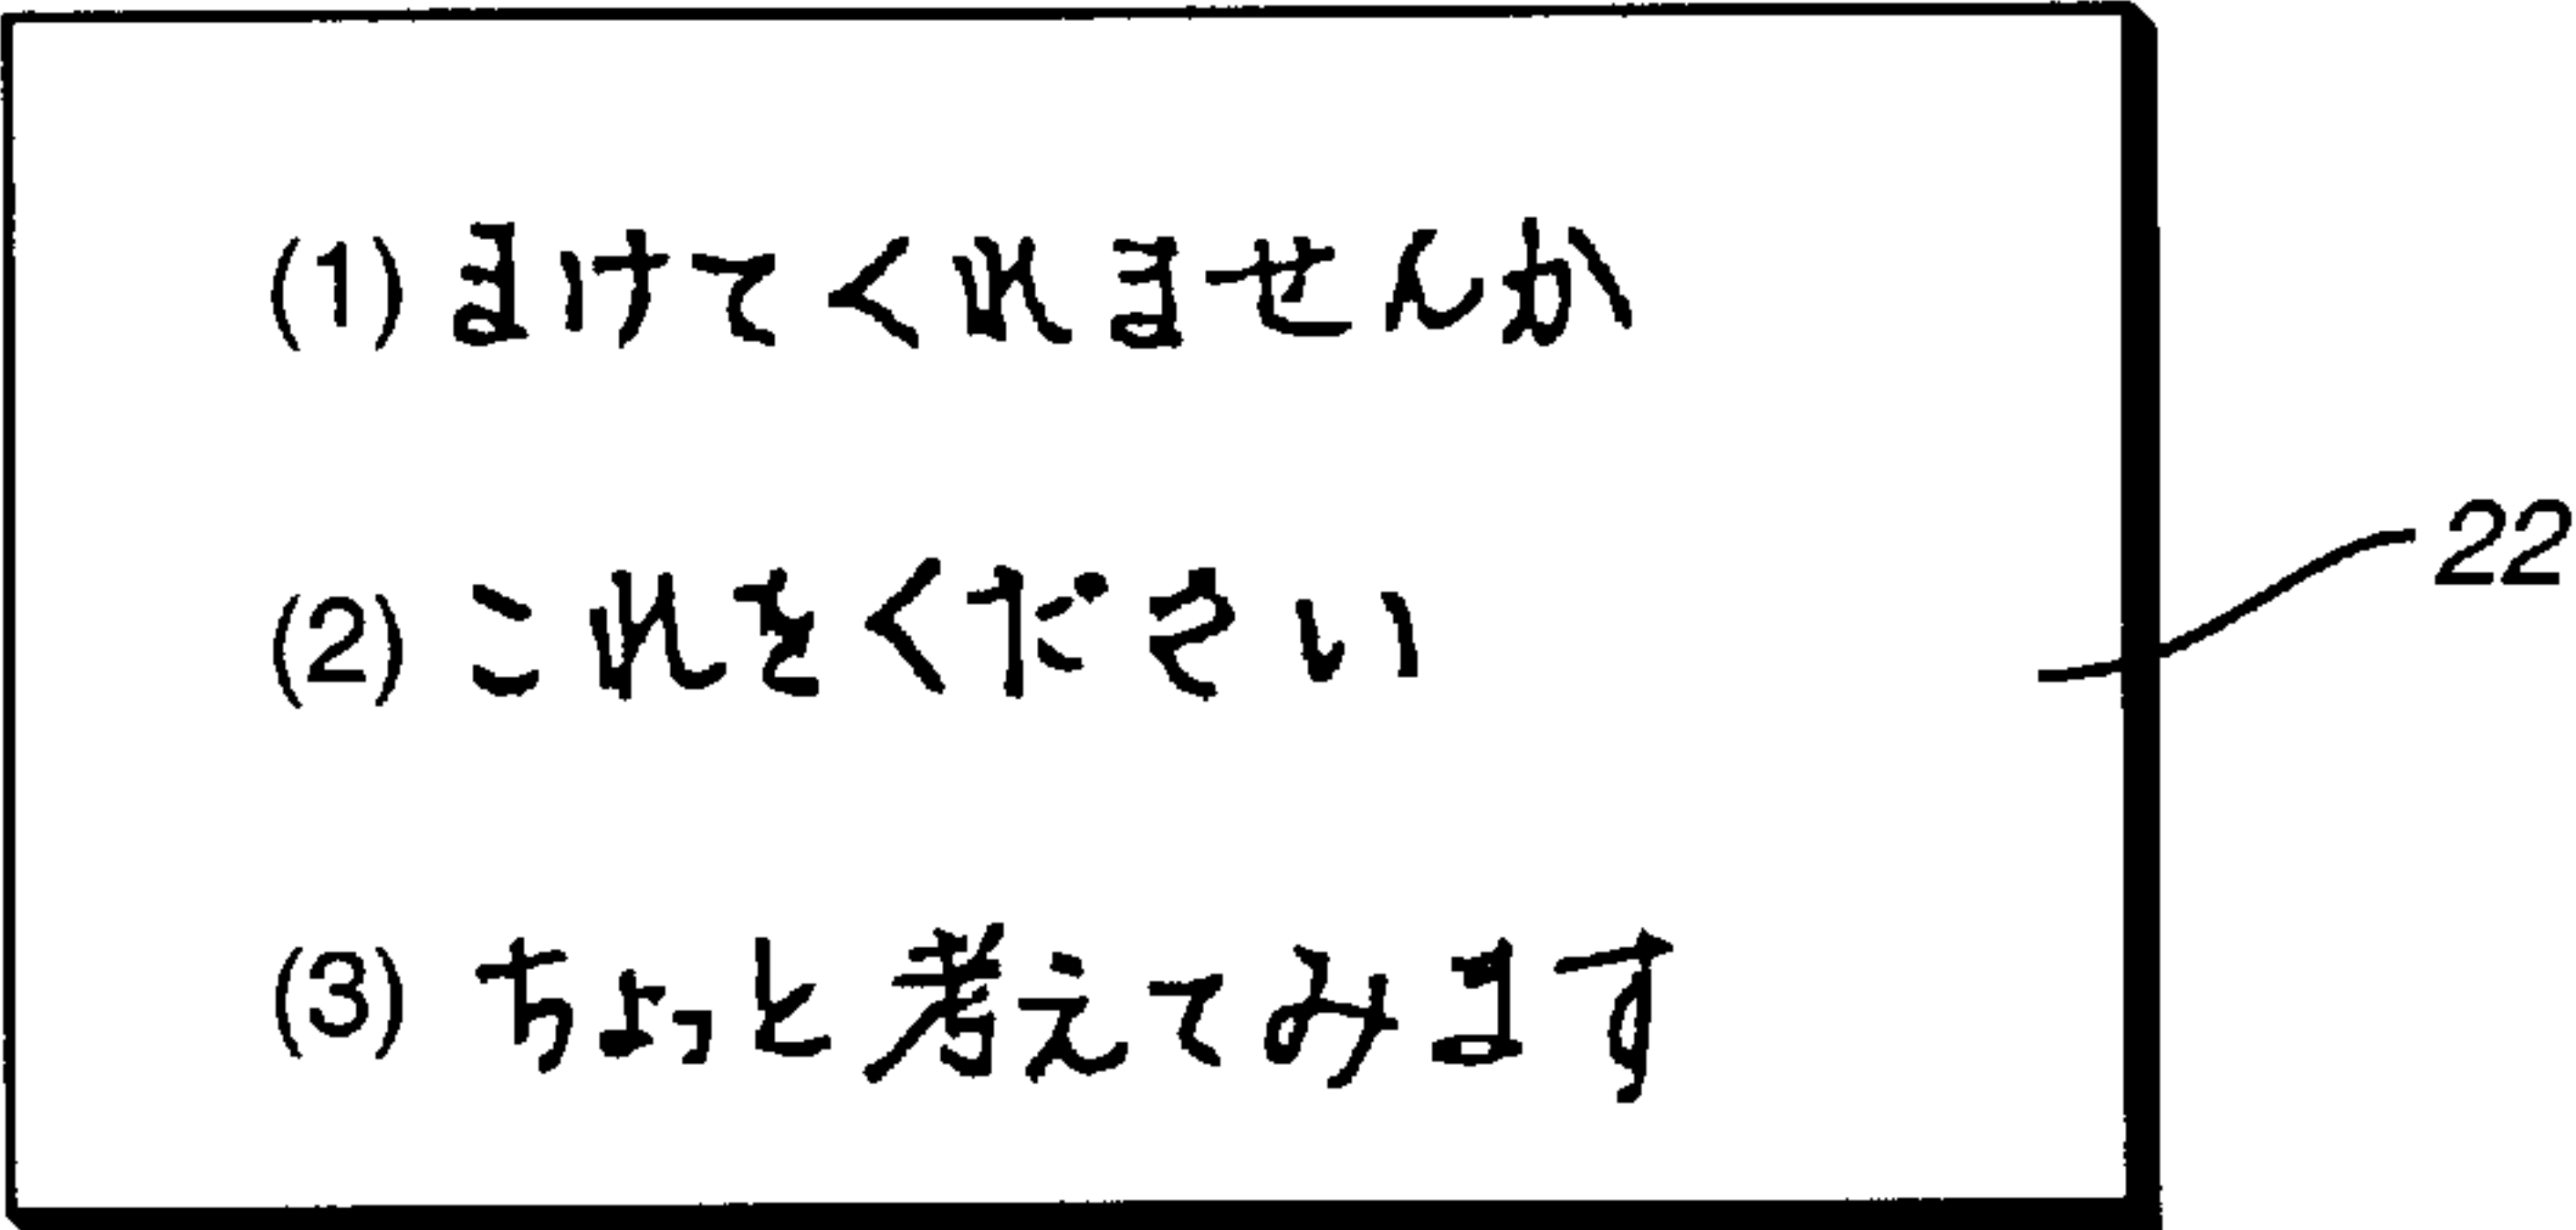 (1) まけてくれませんか
(2) これをください
22
(3) ちょっと考えてみます